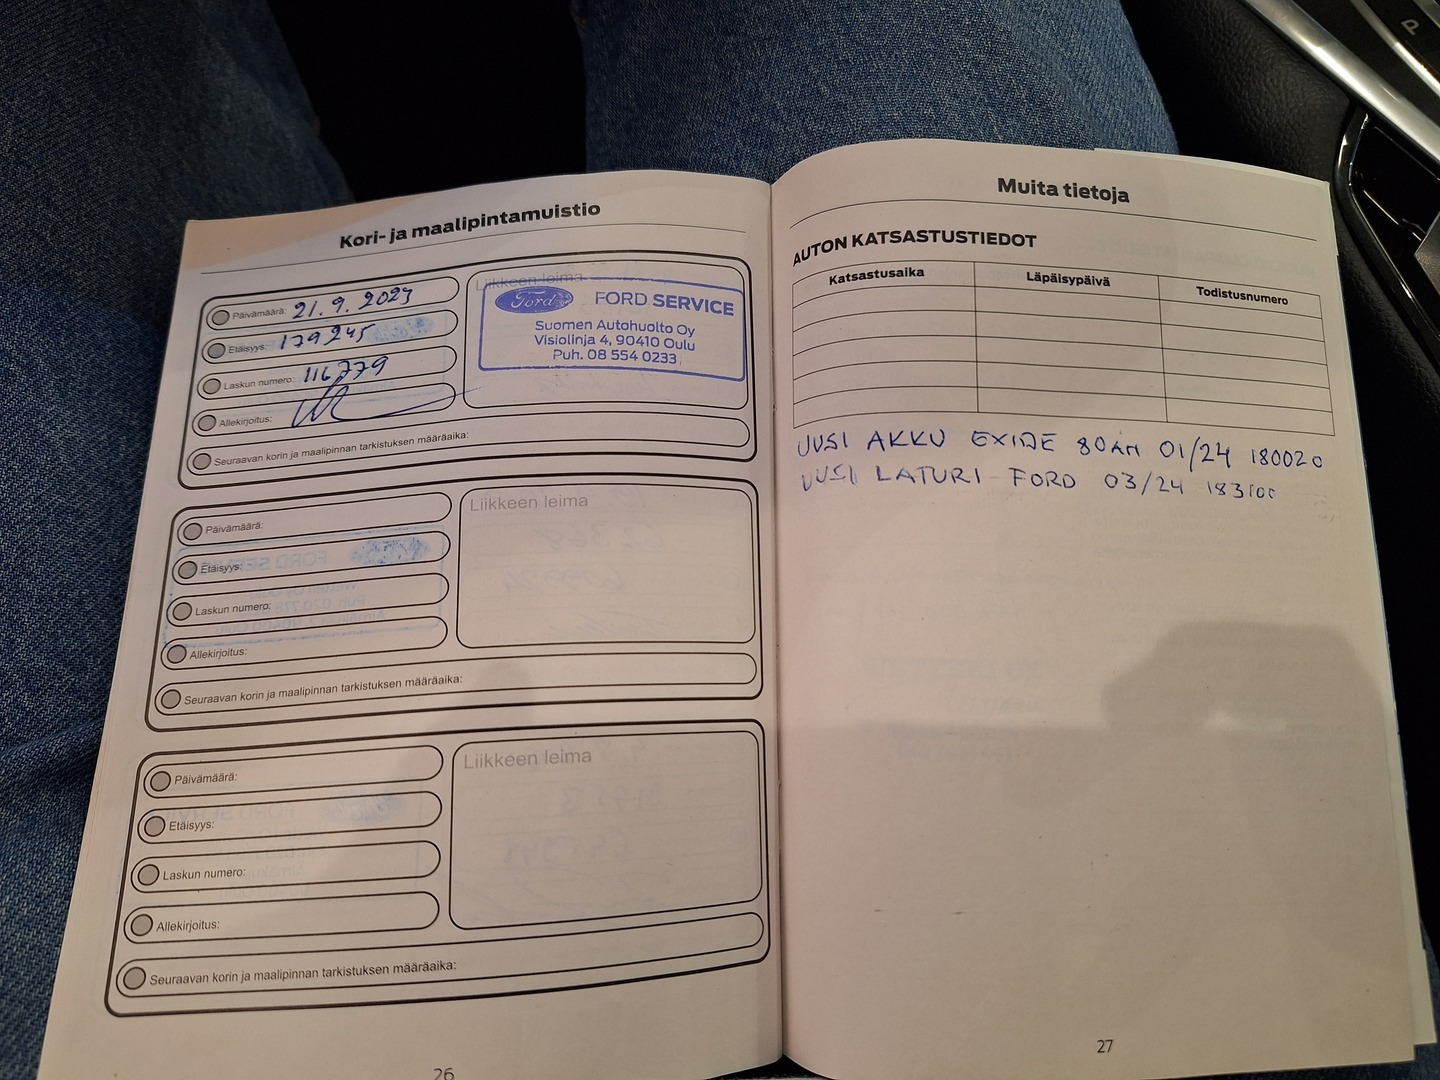 Kori- ja maalipintamuistio
Päivämäärä: 21.9.2023
Etäisyys: 179245
Laskun numero: 116779
Allekirjoitus:
Seuraavan korin ja maalipinnan tarkistuksen määräaika:
Liikkeen leima
Ford FORD SERVICE
Suomen Autohuolto Oy
Visiolinja 4, 90410 Oulu
Puh. 08 554 0233
Päivämäärä:
Etäisyys:
Laskun numero:
Allekirjoitus:
Seuraavan korin ja maalipinnan tarkistuksen määräaika:
Liikkeen leima
Päivämäärä:
Etäisyys:
Laskun numero:
Allekirjoitus:
Seuraavan korin ja maalipinnan tarkistuksen määräaika:
Liikkeen leima
26
Muita tietoja
AUTON KATSASTUSTIEDOT
Katsastusaika Läpäisypäivä Todistusnumero
UUSI AKKU EXIDE 80AH 01/24 180020
UUSI LATURI FORD 03/24 183100
27
P